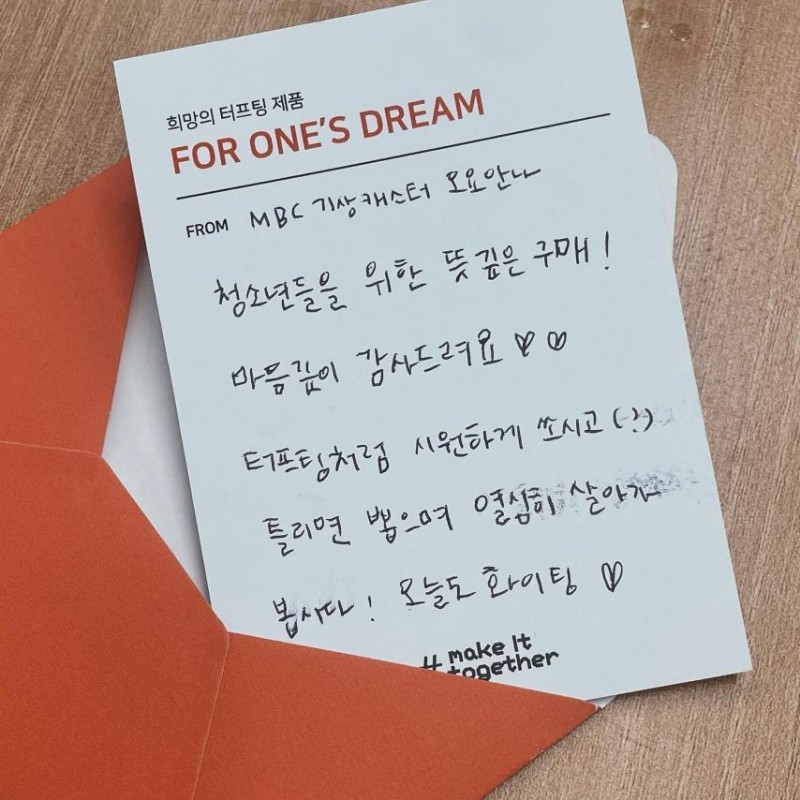 희망의 터프팅 제품
FOR ONE'S DREAM
FROM MBC 기상캐스터 오요안나
청소년들을 위한 뜻깊은 구매!
마음깊이 감사드려요 ♡ ♡
터프팅처럼 시원하게 쏘시고 (!?)
틀리면 뽑으며 열심히 살아가
봅시다! 오늘도 화이팅 ♡
# make It
together